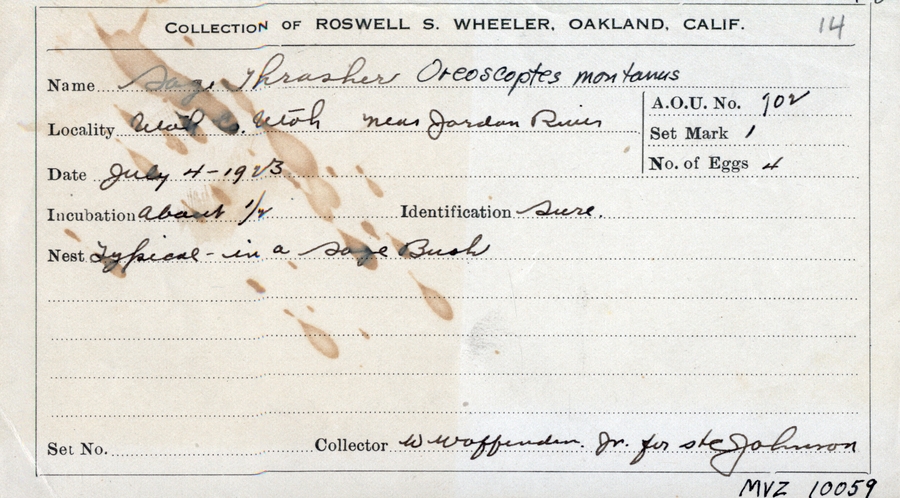 COLLECTION OF ROSWELL S. WHEELER, OAKLAND, CALIF. 14
Name Sage Thrasher Oreoscoptes montanus
A.O.U. No. 702
Locality Utah Co. Utah near Jordan River
Set Mark 1
No. of Eggs 4
Date July 4-1923
Incubation about 1/2 Identification Sure.
Nest Typical - in a Sage Bush
Set No. Collector Jr. for Johnson
MVZ 10059